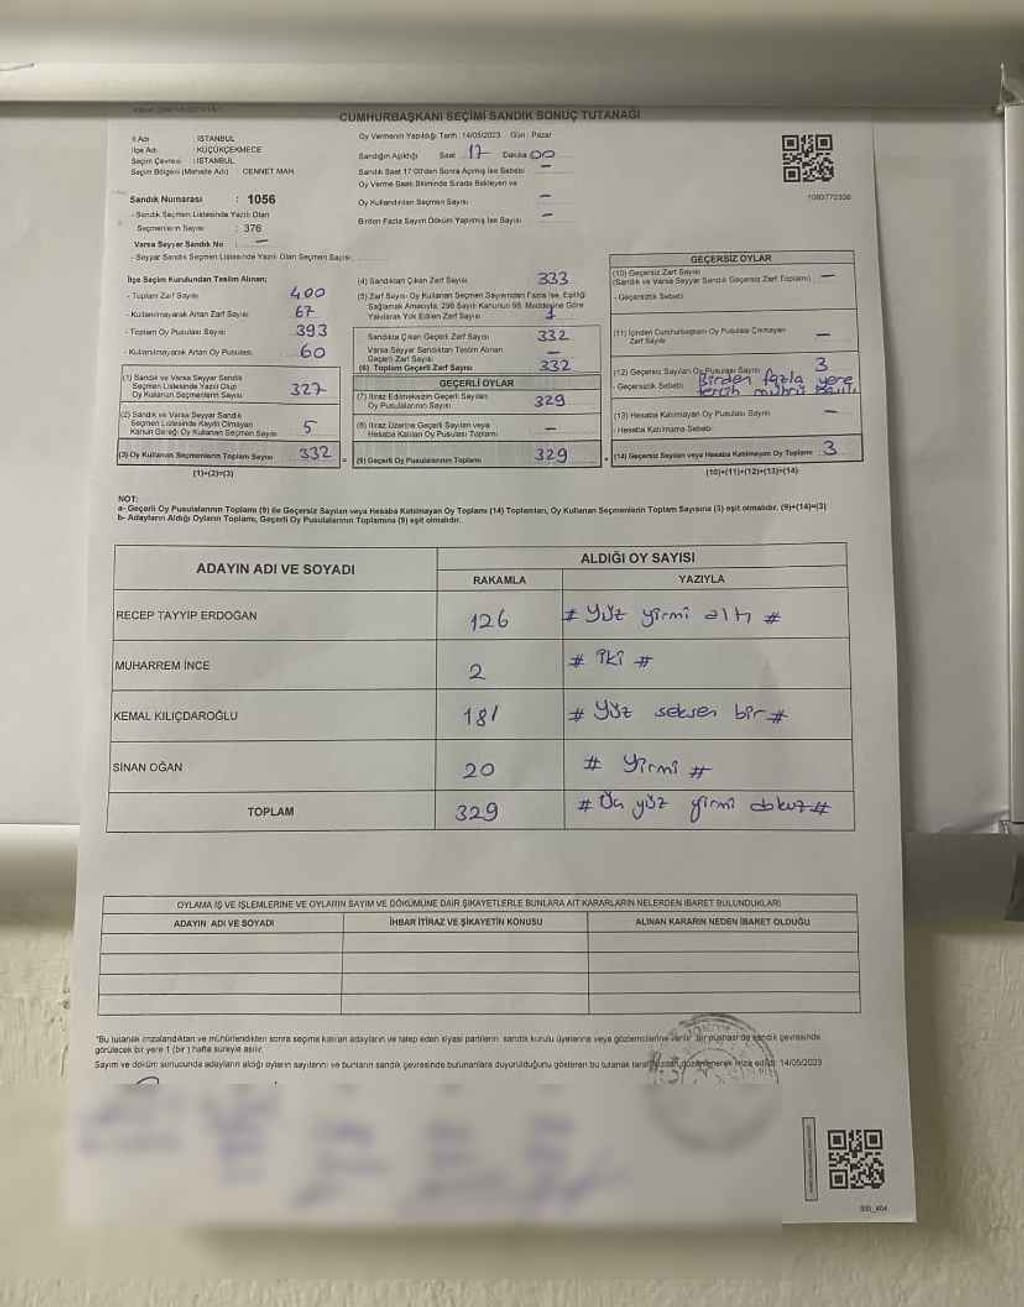 CUMHURBAŞKANI SEÇİMİ SANDIK SONUÇ TUTANAĞI
İl Adı : İSTANBUL
İlçe Adı : KÜÇÜKÇEKMECE
Seçim Çevresi : İSTANBUL
Seçim Bölgesi (Mahalle Adı) CENNET MAH.
Sandık Numarası : 1056
- Sandık Seçmen Listesinde Yazılı Olan
Seçmenlerin Sayısı : 376
Varsa Seyyar Sandık No : —
- Seyyar Sandık Seçmen Listesinde Yazılı Olan Seçmen Sayısı
Oy Vermenin Yapıldığı Tarih : 14/05/2023 Gün : Pazar
Sandığın Açıldığı Saat 17 Dakika 00
Sandık Saat 17.00'den Sonra Açılmış İse Sebebi —
Oy Verme Saati Bitiminde Sırada Bekleyen ve
Oy Kullandırılan Seçmen Sayısı —
Birden Fazla Sayım Döküm Yapılmış İse Sayısı —
1080772336
İlçe Seçim Kurulundan Teslim Alınan;
- Toplam Zarf Sayısı 400
- Kullanılmayarak Artan Zarf Sayısı 67
- Toplam Oy Pusulası Sayısı 393
- Kullanılmayarak Artan Oy Pusulası 60
(1) Sandık ve Varsa Seyyar Sandık
Seçmen Listesinde Yazılı Olup
Oy Kullanan Seçmenlerin Sayısı 327
(2) Sandık ve Varsa Seyyar Sandık
Seçmen Listesinde Kayıtlı Olmayan
Kanun Gereği Oy Kullanan Seçmen Sayısı 5
(3) Oy Kullanan Seçmenlerin Toplam Sayısı 332
(1)+(2)=(3)
(4) Sandıktan Çıkan Zarf Sayısı 333
(5) Zarf Sayısı Oy Kullanan Seçmen Sayısından Fazla İse, Eşitliği
Sağlamak Amacıyla, 298 Sayılı Kanunun 98. Maddesine Göre
Yakılarak Yok Edilen Zarf Sayısı 1
Sandıkta Çıkan Geçerli Zarf Sayısı 332
Varsa Seyyar Sandıktan Teslim Alınan
Geçerli Zarf Sayısı —
(6) Toplam Geçerli Zarf Sayısı 332
GEÇERLİ OYLAR
(7) İtiraz Edilmeksizin Geçerli Sayılan
Oy Pusulalarının Sayısı 329
(8) İtiraz Üzerine Geçerli Sayılan veya
Hesaba Katılan Oy Pusulası Toplamı —
(9) Geçerli Oy Pusulalarının Toplamı 329
GEÇERSİZ OYLAR
(10) Geçersiz Zarf Sayısı
(Sandık ve Varsa Seyyar Sandık Geçersiz Zarf Toplamı) —
- Geçersizlik Sebebi
(11) İçinden Cumhurbaşkanı Oy Pusulası Çıkmayan
Zarf Sayısı —
(12) Geçersiz Sayılan Oy Pusulası Sayısı 3
- Geçersizlik Sebebi Birden fazla yere
tercih mührü basılı
(13) Hesaba Katılmayan Oy Pusulası Sayısı —
- Hesaba Katılmama Sebebi
(14) Geçersiz Sayılan veya Hesaba Katılmayan Oy Toplamı 3
(10)+(11)+(12)+(13)=(14)
NOT:
a- Geçerli Oy Pusulalarının Toplamı (9) ile Geçersiz Sayılan veya Hesaba Katılmayan Oy Toplamı (14) Toplamları, Oy Kullanan Seçmenlerin Toplam Sayısına (3) eşit olmalıdır. (9)+(14)=(3)
b- Adayların Aldığı Oyların Toplamı, Geçerli Oy Pusulalarının Toplamına (9) eşit olmalıdır.
ADAYIN ADI VE SOYADI ALDIĞI OY SAYISI
RAKAMLA YAZIYLA
RECEP TAYYİP ERDOĞAN 126 # Yüz yirmi altı #
MUHARREM İNCE 2 # İki #
KEMAL KILIÇDAROĞLU 181 # Yüz seksen bir #
SİNAN OĞAN 20 # Yirmi #
TOPLAM 329 # Üç yüz yirmi dokuz #
OYLAMA İŞ VE İŞLEMLERİNE VE OYLARIN SAYIM VE DÖKÜMÜNE DAİR ŞİKAYETLERLE BUNLARA AİT KARARLARIN NELERDEN İBARET BULUNDUKLARI
ADAYIN ADI VE SOYADI İHBAR İTİRAZ VE ŞİKAYETİN KONUSU ALINAN KARARIN NEDEN İBARET OLDUĞU
"Bu tutanak imzalandıktan ve mühürlendikten sonra seçime katılan adayların ve talep eden siyasi partilerin sandık kurulu üyelerine veya gözlemcilerine verilir. Bir nüshası da sandık çevresinde
görülecek bir yere 1 (bir) hafta süreyle asılır.
Sayım ve döküm sonucunda adayların aldığı oyların sayılarını ve bunların sandık çevresinde bulunanlara duyurulduğunu gösteren bu tutanak tarafımızdan düzenlenerek imza edildi. 14/05/2023